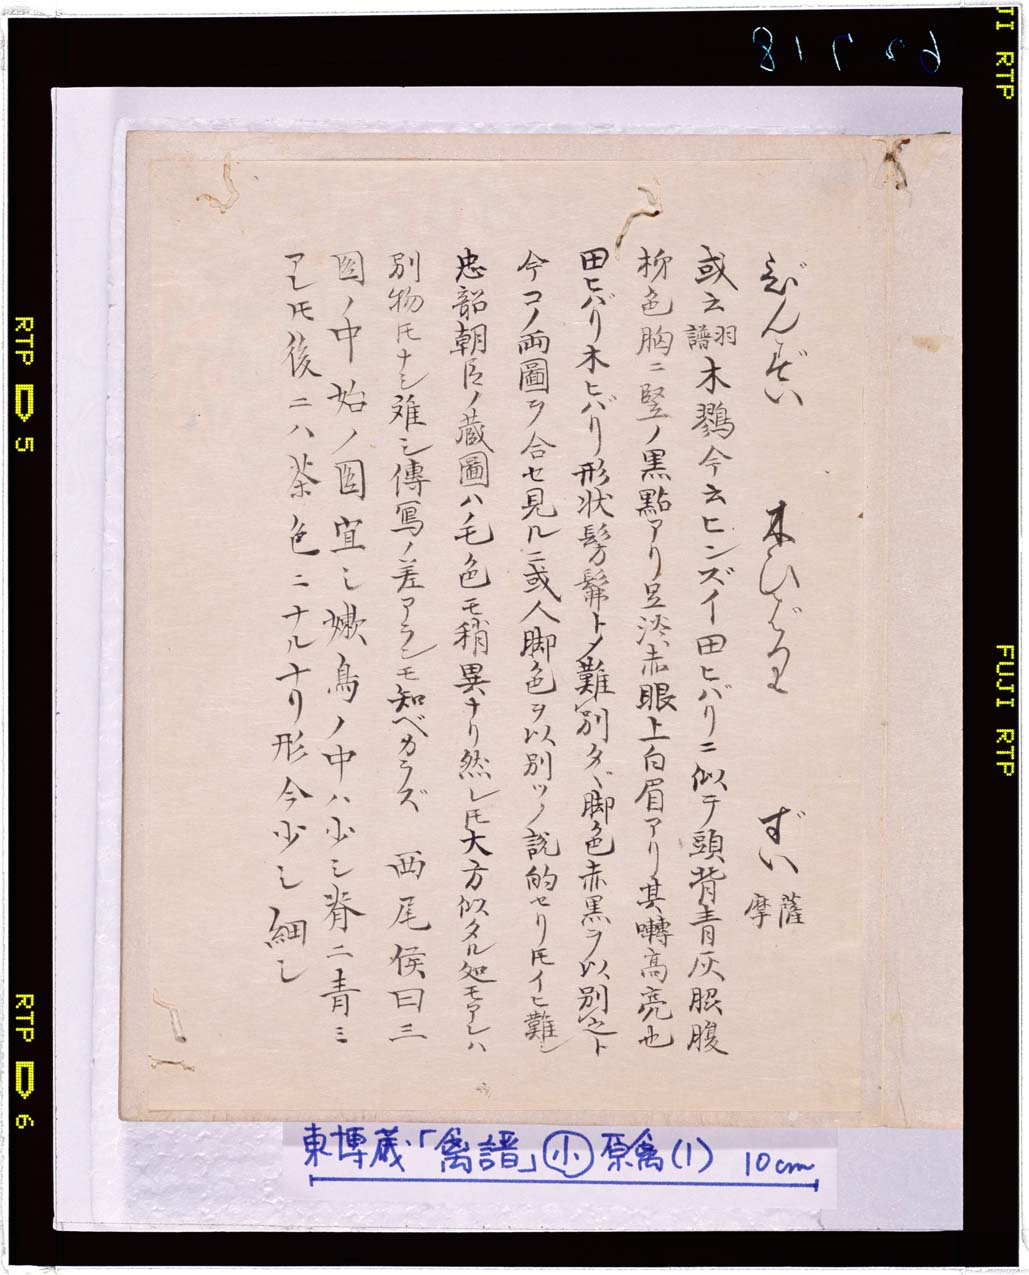 びんずい 木ひばり ずい 薩摩
或云 羽譜 木鷚今云ヒンズイ田ヒバリニ似テ頭背青灰脵腹
柳色胸ニ竪ノ黒點アリ足淡赤眼上白眉アリ其囀高亮也
田ヒバリ木ヒバリ形状髣髴トメ難別タヾ脚色赤黒ヲ以別之ト
今コノ両圖ヲ合セ見ルニ或人脚色ヲ以別ツノ説的セリ𪜈イヒ難シ
忠韶朝臣ノ蔵圖ハノ毛色モ稍異ナリ然レ𪜈大方似タル処モアレハ
別物𪜈ナシ難シ傳寫ノ差アランモ知ベカラズ 西尾侯曰三
図ノ中始ノ図宜シ嫩鳥ノ中ハ少シ脊ニ青ミ
アレ𪜈後ニハ茶色ニナルナリ形今少シ細シ
東博蔵「禽譜」小 原禽(1) 10cm
FUJI RTP
RTP 5
RTP 6
JI RTP